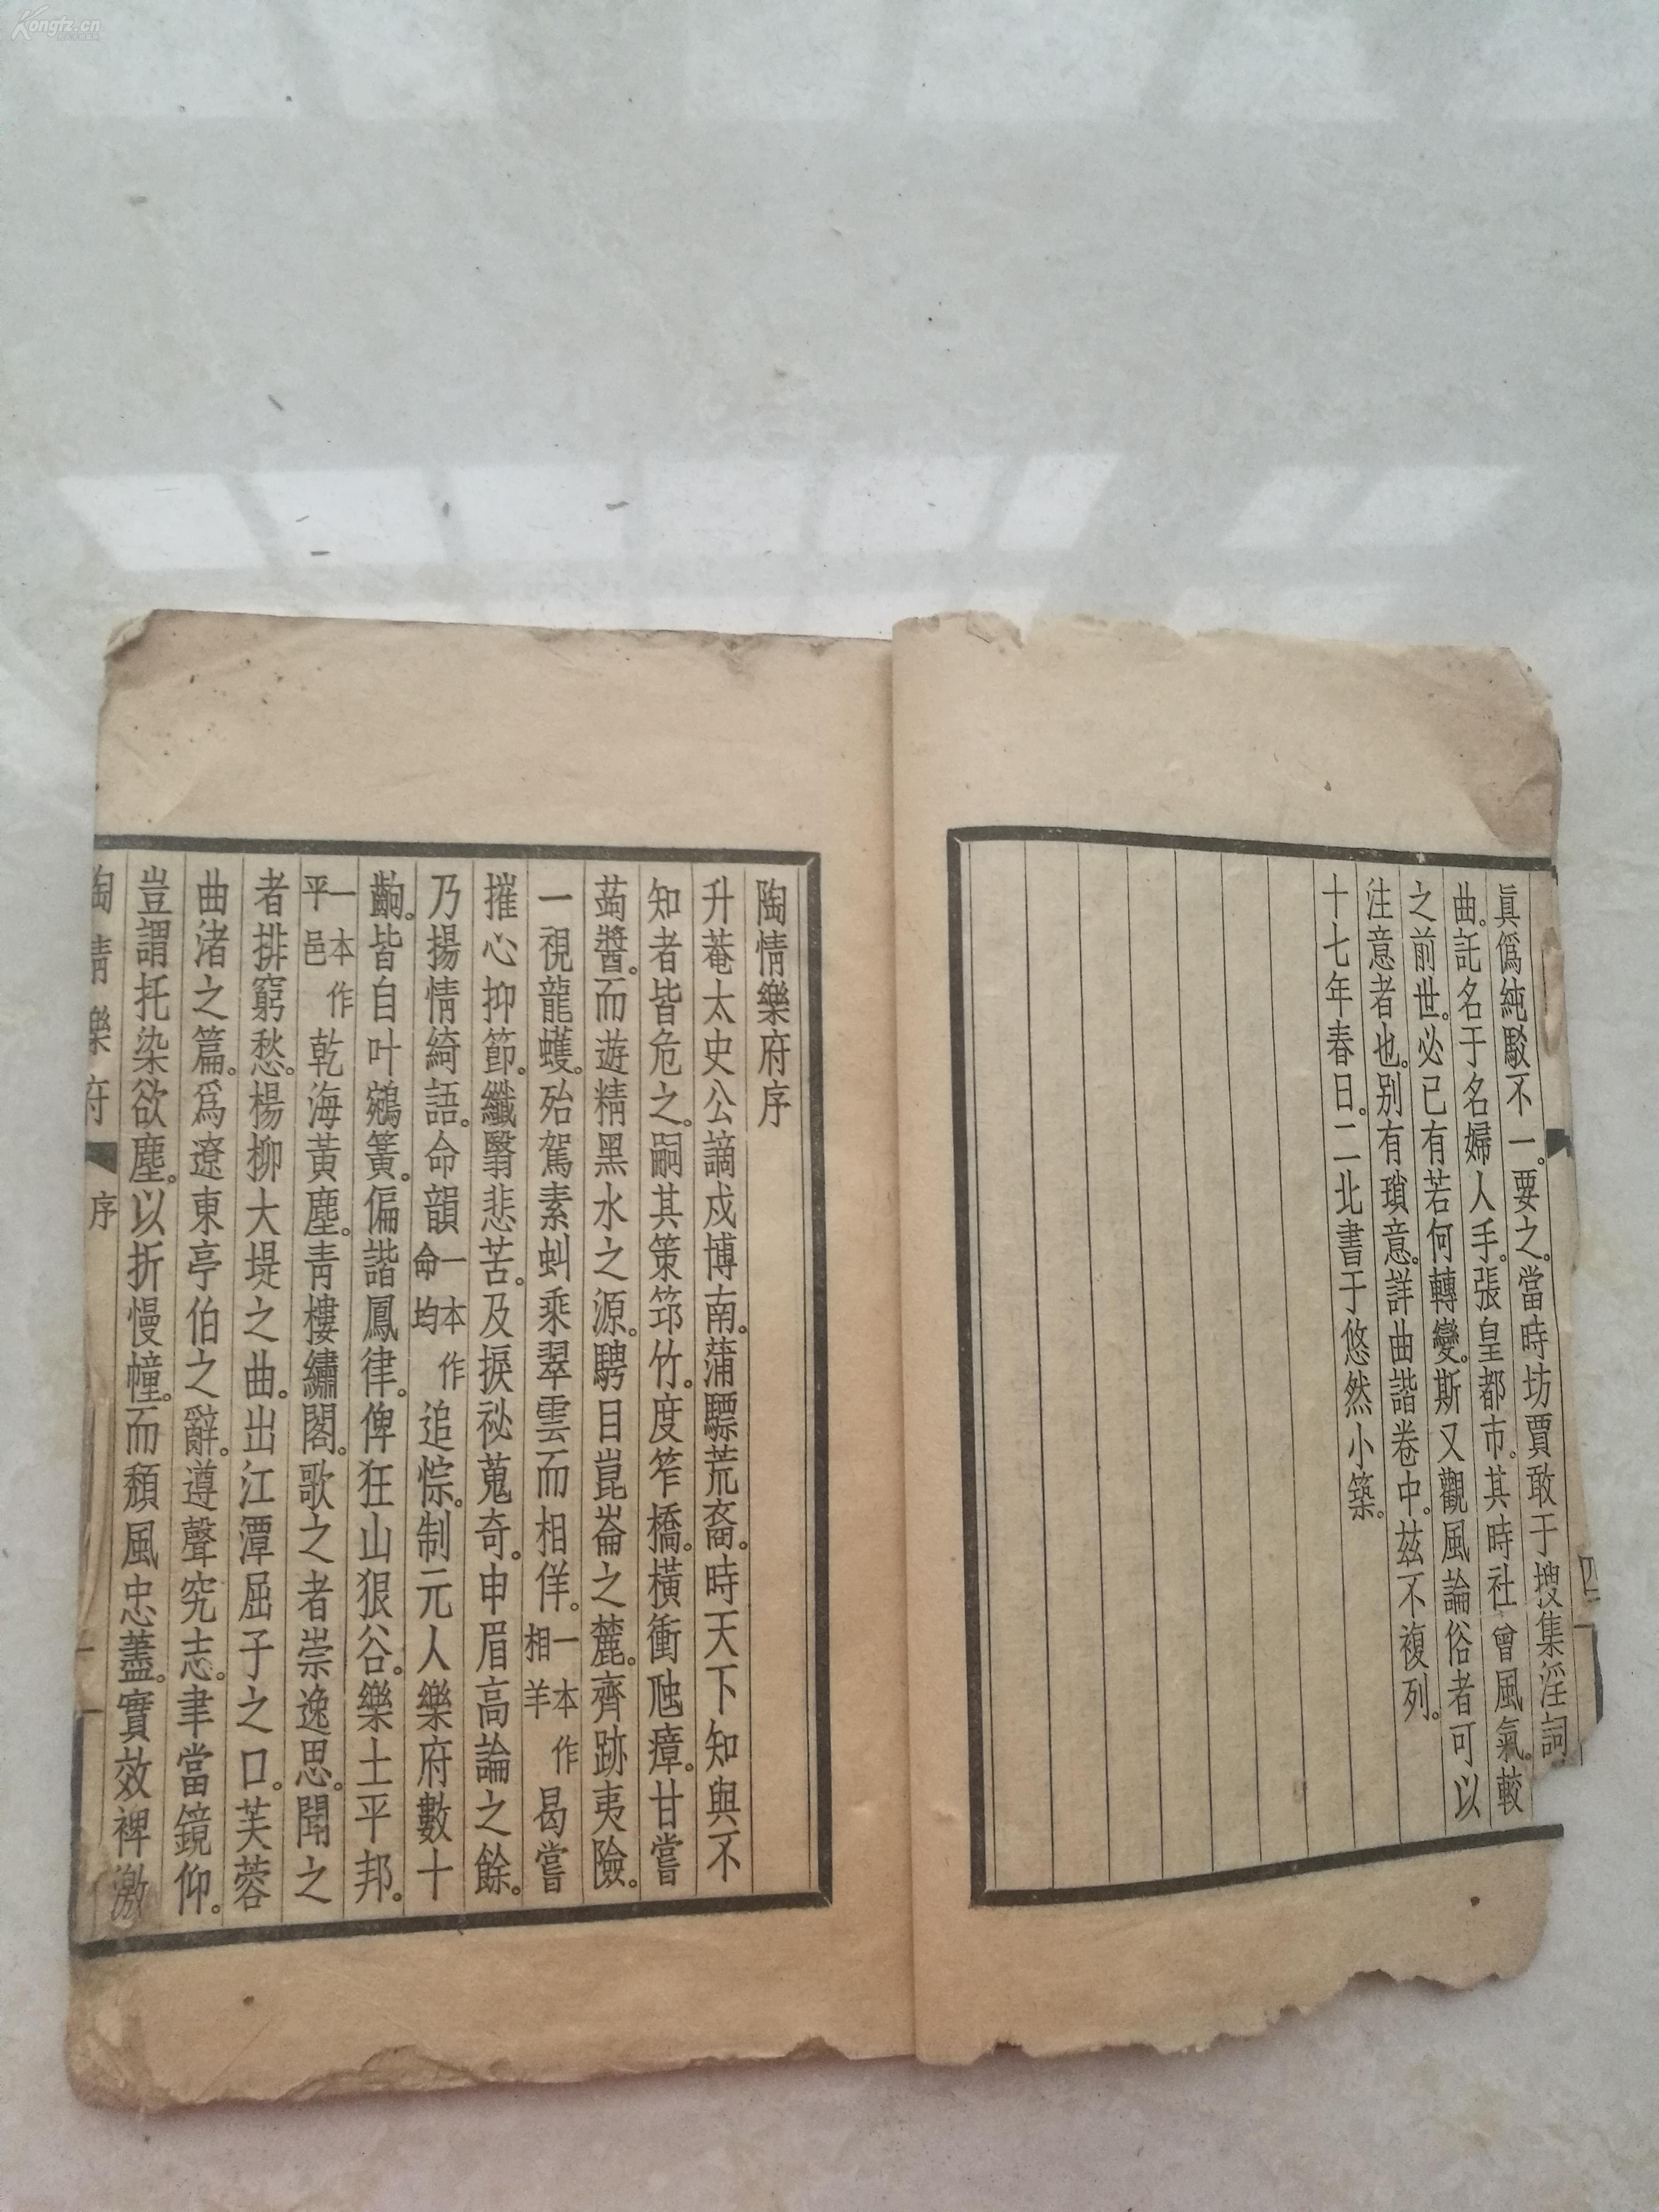 眞僞純駁不一。要之。當時坊賈敢于搜集淫詞
曲。託名于名婦人手。張皇都市。其時社會風氣。較
之前世。必已有若何轉變。斯又觀風論俗者可以
注意者也。別有瑣意。詳曲諧卷中。玆不複列。
十七年春日。二北書于悠然小築。
四
陶情樂府序
升菴太史公謫戍博南。蒲驃荒裔。時天下知與不
知者皆危之。嗣其策笻竹。度笮橋。橫衝虺瘴。甘嘗
蒟醬。而遊精黑水之源。騁目崑崙之麓。齊跡夷險。
一視龍蠖。殆駕素虯乘翠雲而相佯。一本作相羊曷嘗
摧心抑節。纖翳悲苦。及捩祕蒐奇。申眉高論之餘。
乃揚情綺語。命韻一本作命均追悰。制元人樂府數十
齣。皆自叶鵷簧。偏諧鳳律。俾狂山狠谷。樂土平邦。
一本作平邑乾海黃塵。靑樓繡閣。歌之者崇逸思。聞之
者排窮愁。楊柳大堤之曲。出江潭屈子之口。芙蓉
曲渚之篇。爲遼東亭伯之辭。遵聲究志。聿當鏡仰。
豈謂托染欲塵。以折慢幢。而頹風忠藎。實效裨激
陶情樂府 序 一
Kongfz.cn